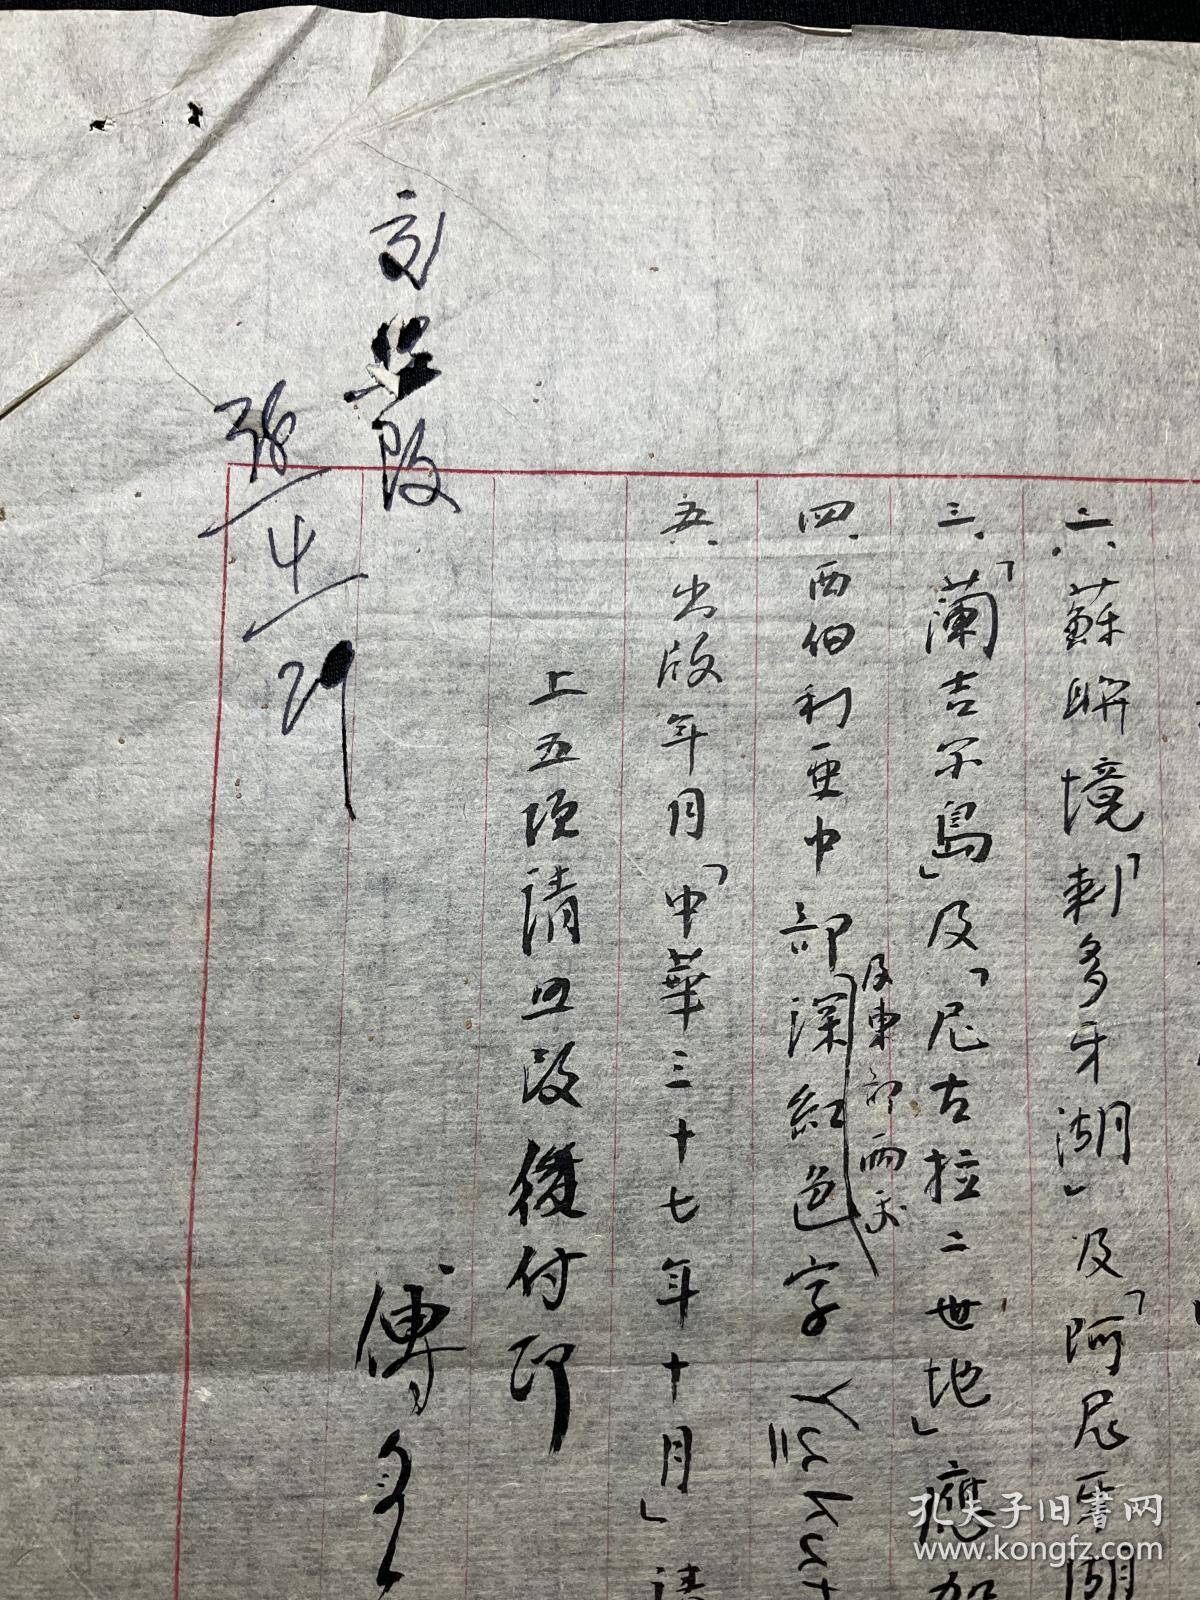 二、蘇联境「剌多牙湖」及「阿尼牙湖
三、「蘭吉尔島」及「尼古拉二世地」應加
及東部兩天
四、西伯利亜中部深紅色字 Yakut
五、出版年月「中華三十七年十月」請
上五項請照改後付印
傅
改
張
4/29
孔夫子旧書网
www.kongfz.com